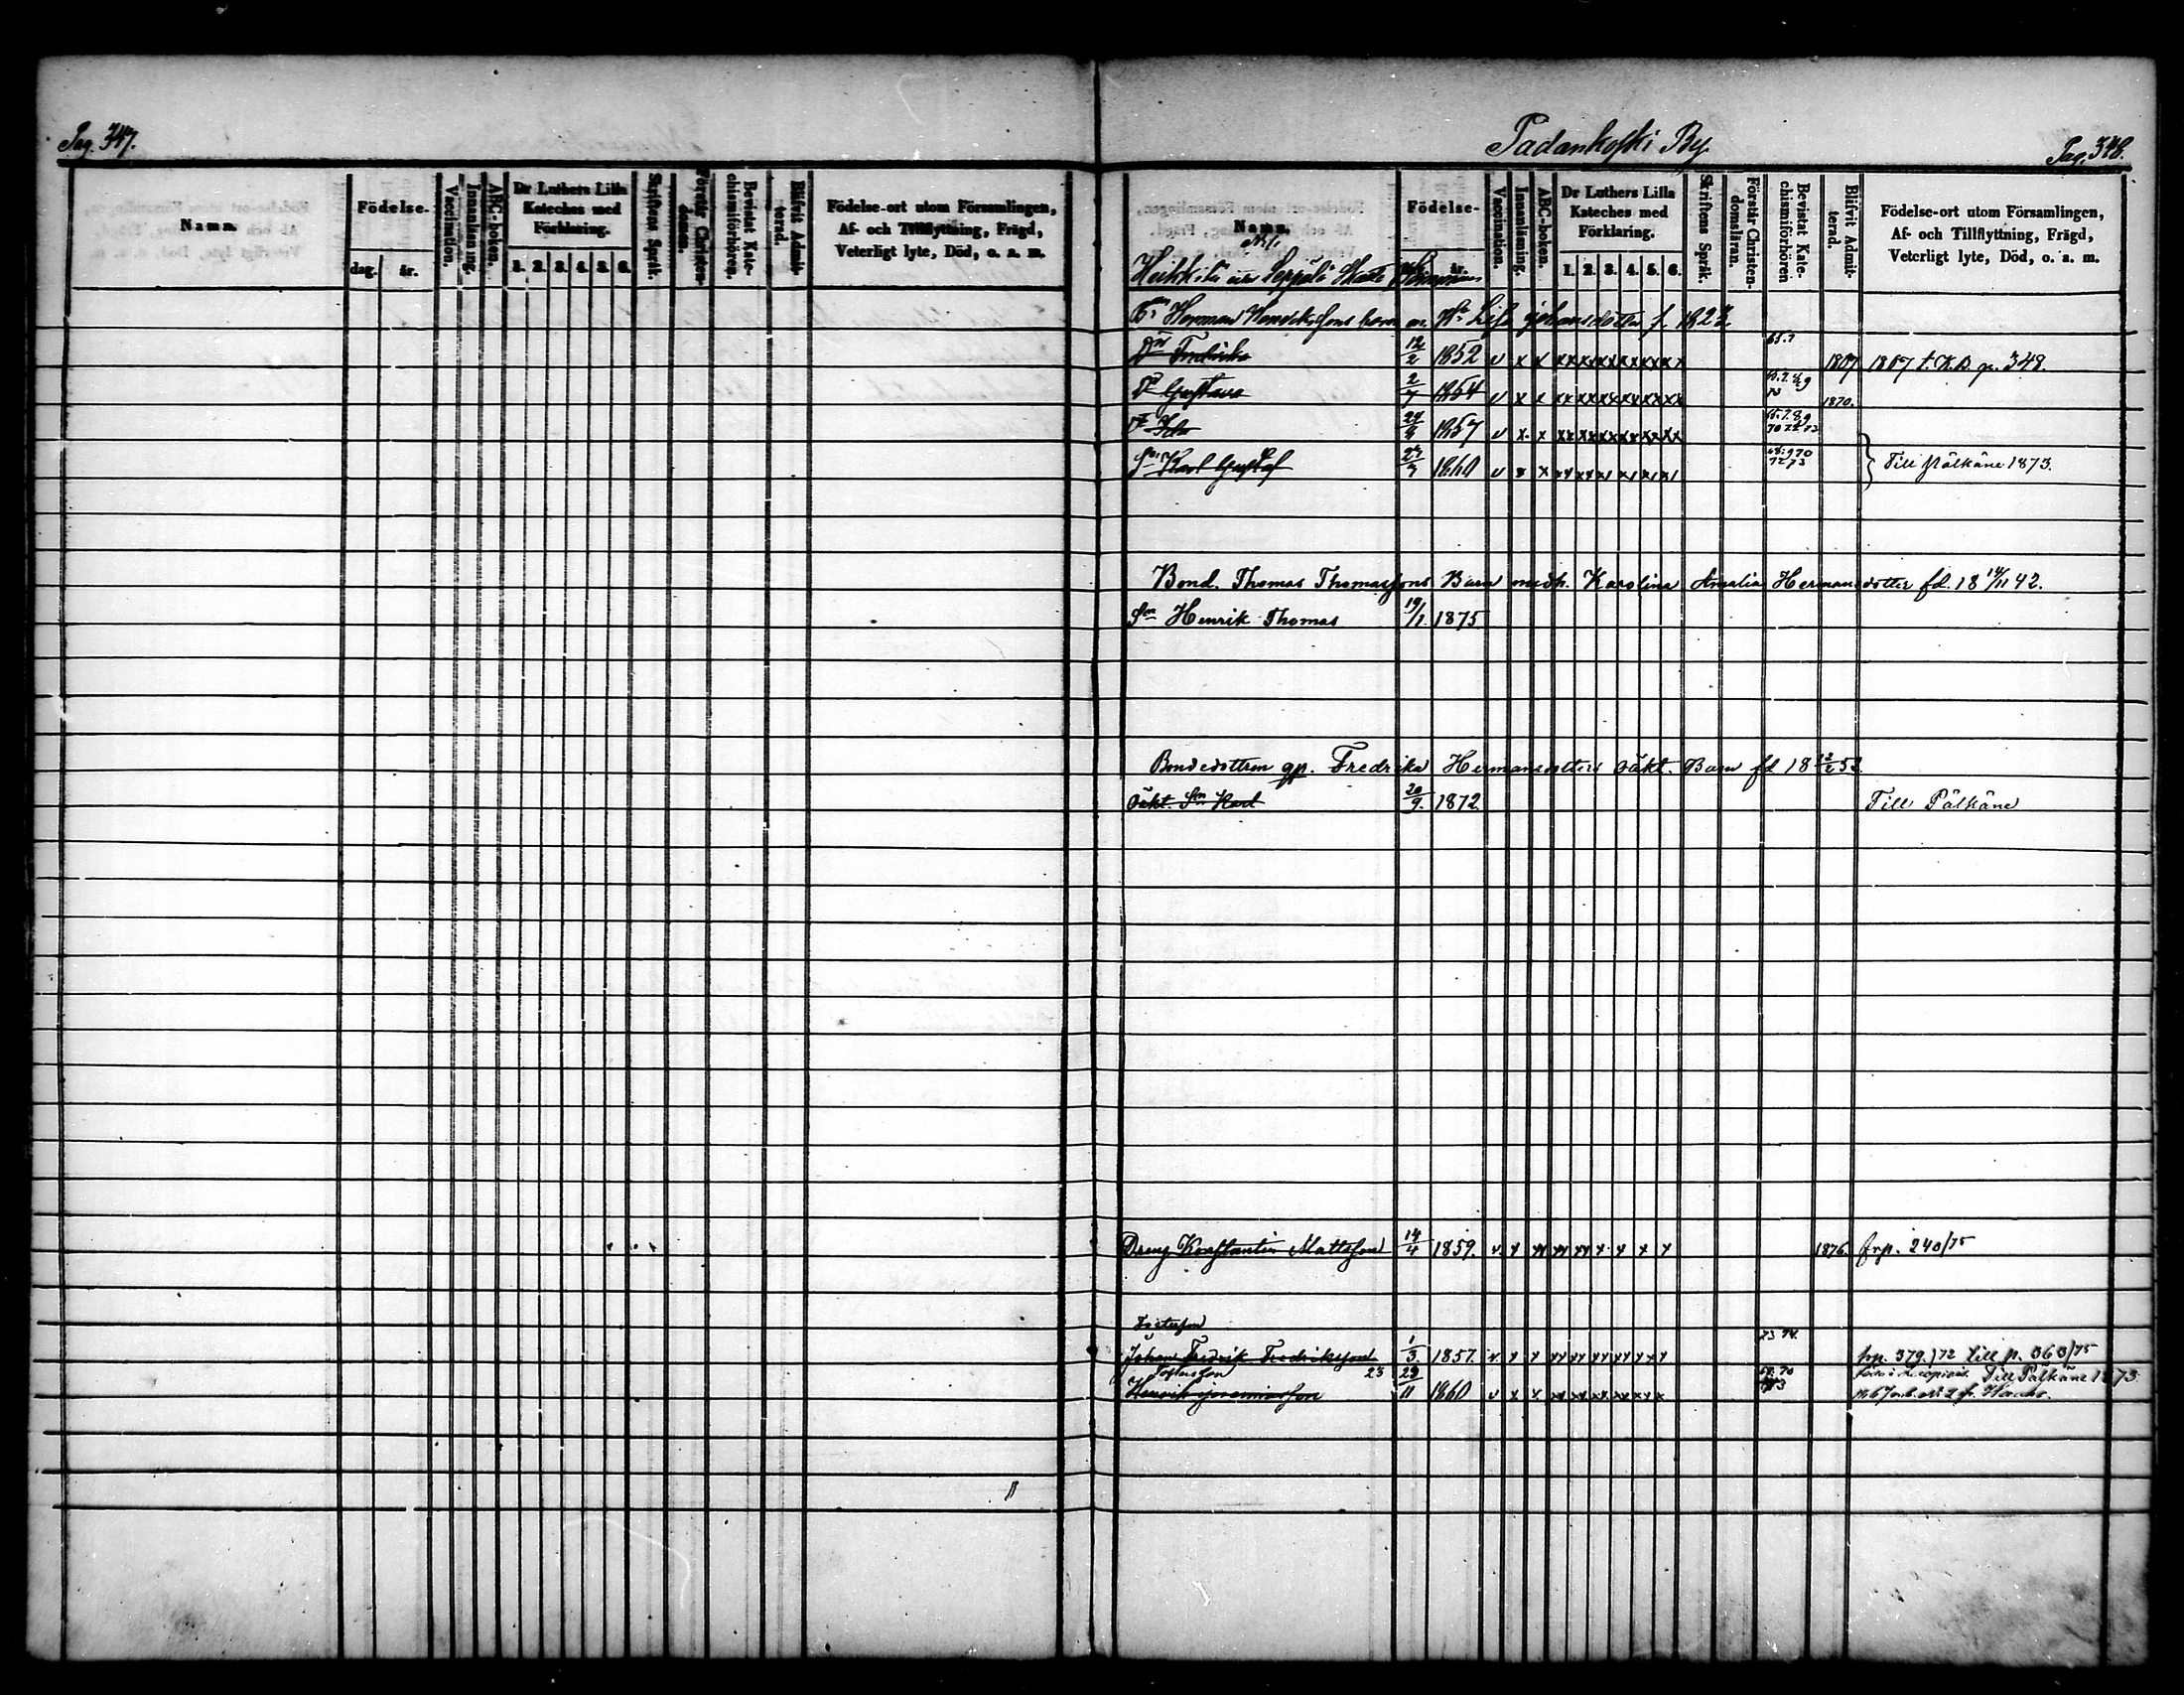 Pag. 347.
Namn.
Födelse-
dag. år.
Vaccination.
Innanläsning.
ABC-boken.
Dr Luthers Lilla Kateches med Förklaring.
1. 2. 3. 4. 5. 6.
Skriftens Språk.
Förstår Christen-domen.
Bevistat Kate-chismiförhören.
Blifvit Admit-terad.
Födelse-ort utom Församlingen,
Af- och Tillflyttning, Frägd,
Veterligt lyte, Död, o. a. m.
Padankoski By
Pag. 348.
Namn.
Födelse-
år.
Vaccination.
Innanläsning.
ABC-boken.
Dr Luthers Lilla Kateches med Förklaring.
1. 2. 3. 4. 5. 6.
Skriftens Språk.
Förstår Christen-domsläran.
Bevistat Kate-chismiförhören
Blifvit Admit-terad.
Födelse-ort utom Församlingen,
Af- och Tillflyttning, Frägd,
Veterligt lyte, Död, o. a. m.
Heikkilä Seppälä
Herman Henrikssons barn Lisa Johansdotter f.
Dr Fredrika 12/2 1852 v x x 1867 1867 t. K.B. p. 348.
Dr Gustava 2/7 1854 v x x 1870.
1857 v x x
Sn Karl Gustaf 1860 v x x Till Pälkäne 1873.
Bond. Thomas Thomassons Barn med h. Karolina Amalia Hermansdotter fd. 18 14/11 42.
Sn Henrik Thomas 19/1 1875
Bondedottren gp. Fredrika Hermansdotters oäkt. Barn fd 18 12/2 52.
oäkt. Sn Karl 20/9. 1872. Till Pälkäne
Dreng Konstantin Mattsson 14/4 1859. 1876. frp. 240/75
Johan Fredrik Fredriksson 1/3. 1857. 73 74. frp. 379./72 till p. 363/75
Henrik 11 1860 Till Pälkäne 1873.